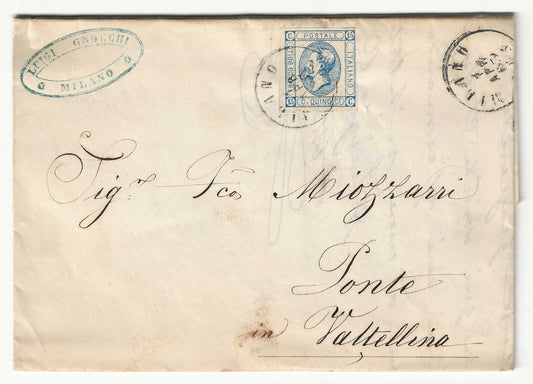 LUIGI GNOCCHI
MILANO
C 15
POSTALE
FRANCO BOLLO
ITALIANO
C. QUINDICI
15 C
MILANO
MILANO
Sigr. Fco Miozzarri
Ponte
in Valtellina